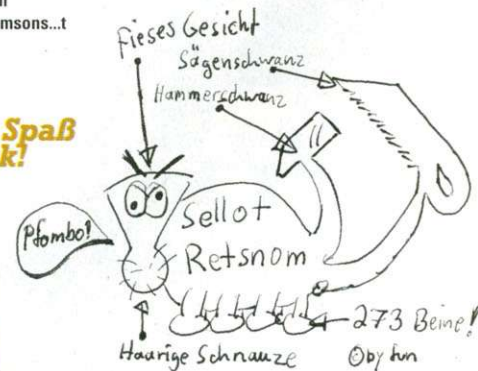 n
msons...t
Spaß
k!
Fieses Gesicht
Sägenschwanz
Hammerschwanz
Pfombo!
Sellot
Retsnom
273 Beine!
Haarige Schnauze
©by fun